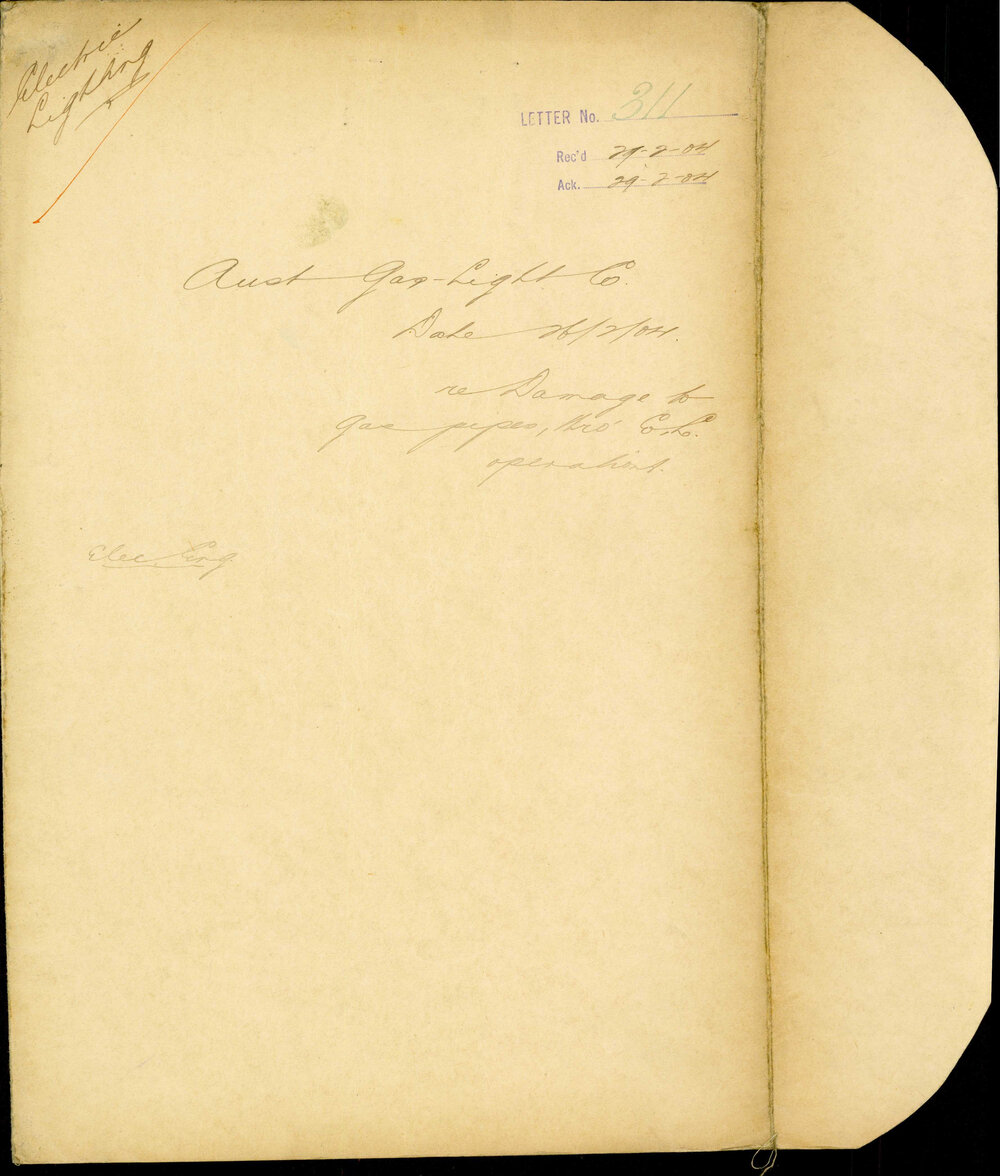 Electric
Lighting
LETTER No. 311
Rec'd 29-2-04
Ack. 29-2-04
Aust Gas-Light Co.
Date 26/2/04.
re Damage to
gas pipes, thro' E.L.
operations.
Elec Eng